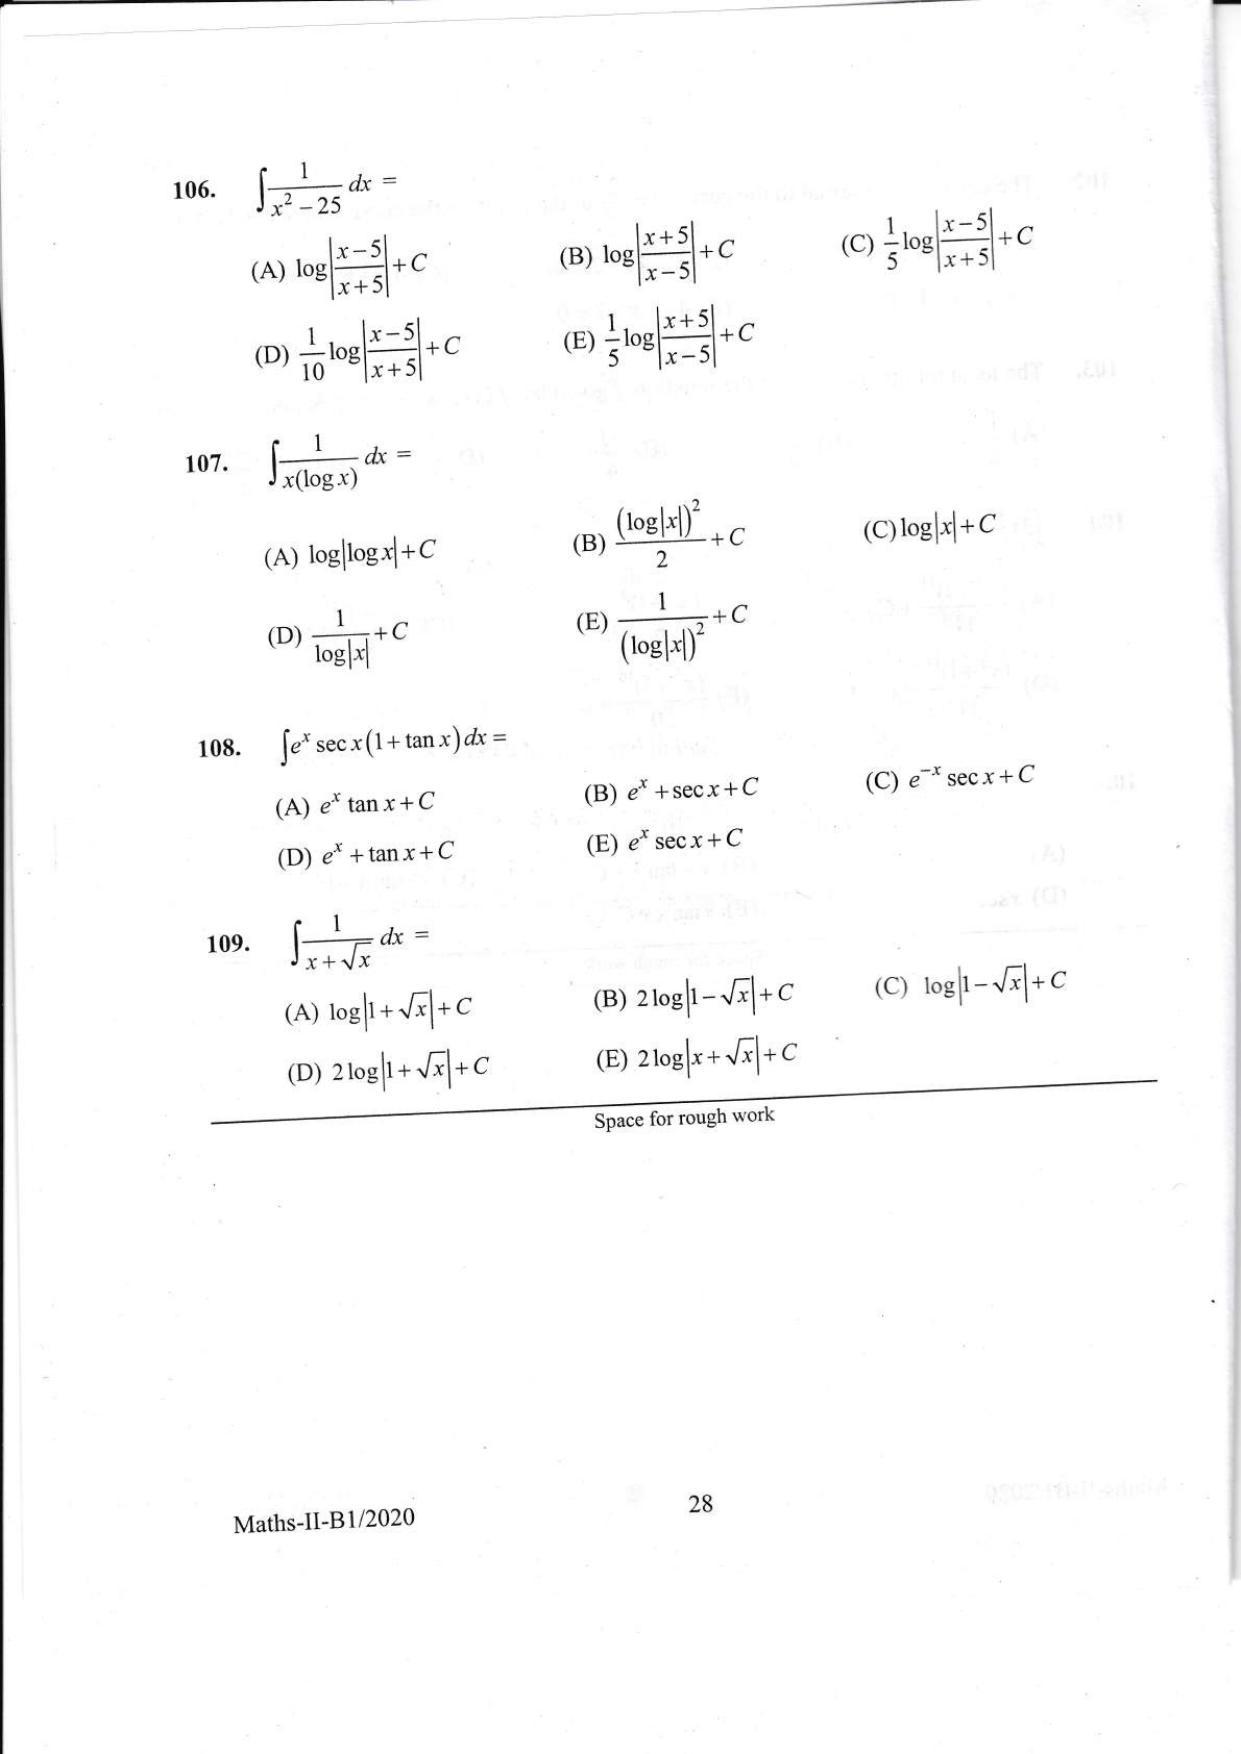 106. ∫ 1/(x² − 25) dx =
(A) log|(x−5)/(x+5)| + C (B) log|(x+5)/(x−5)| + C (C) 1/5 log|(x−5)/(x+5)| + C
(D) 1/10 log|(x−5)/(x+5)| + C (E) 1/5 log|(x+5)/(x−5)| + C
107. ∫ 1/(x(log x)) dx =
(A) log|log x| + C (B) (log|x|)²/2 + C (C) log|x| + C
(D) 1/log|x| + C (E) 1/(log|x|)² + C
108. ∫eˣ sec x(1 + tan x) dx =
(A) eˣ tan x + C (B) eˣ + sec x + C (C) e⁻ˣ sec x + C
(D) eˣ + tan x + C (E) eˣ sec x + C
109. ∫ 1/(x + √x) dx =
(A) log|1 + √x| + C (B) 2 log|1 − √x| + C (C) log|1 − √x| + C
(D) 2 log|1 + √x| + C (E) 2 log|x + √x| + C
Space for rough work
Maths-II-B1/2020 28